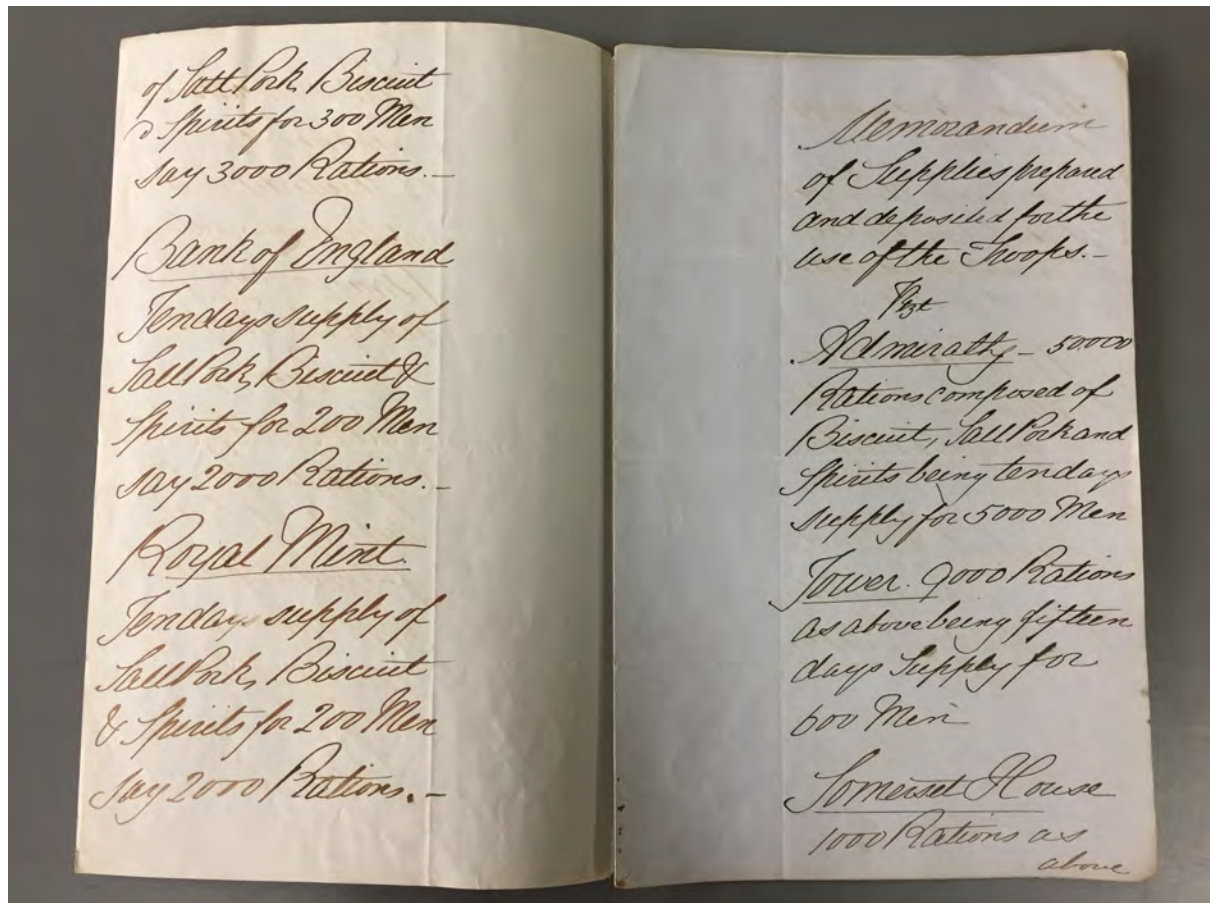 of Salt Pork, Biscuit
& Spirits for 300 Men
say 3000 Rations. –
Bank of England
Ten days supply of
Salt Pork, Biscuit &
Spirits for 200 Men
say 2000 Rations. –
Royal Mint
Ten days supply of
Salt Pork, Biscuit
& Spirits for 200 Men
say 2000 Rations. –
Memorandum
of Supplies prepared
and deposited for the
use of the Troops. –
Admiralty – 50000
Rations composed of
Biscuit, Salt Pork and
Spirits being ten days
supply for 5000 Men
Tower. 9000 Rations
as above being fifteen
days Supply for
600 Men
Somerset House
1000 Rations as
above